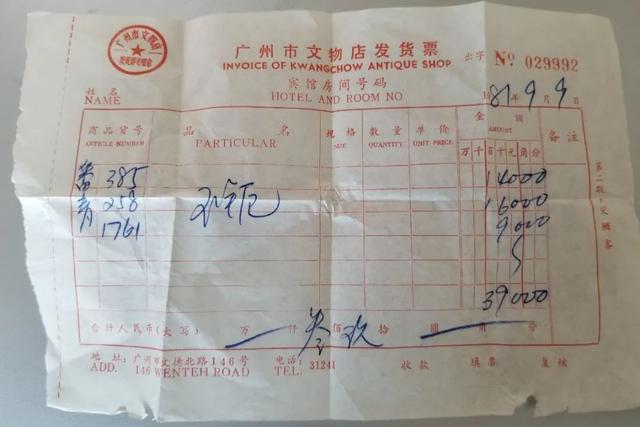 广州市文物店
广州市文物店发货票
出字 Nº 029992
INVOICE OF KWANGCHOW ANTIQUE SHOP
宾馆房间号码
姓名
NAME
HOTEL AND ROOM NO
1981年9月9
商品货号 品名 规格 数量 单价 金额 备注
ARTICLE NUMBER PARTICULAR SIZE QUANTITY UNIT PRICE AMOUNT
万千百十元角分
385 14000
258 16000
1761 9000
39000
合计人民币(大写) 万 仟 叁 佰 玖 拾 圆 角 分
地址:广州市文德北路146号 电话: 收款 填票 复核
ADD. 146 WENTEH ROAD TEL. 31241
第二联:交顾客